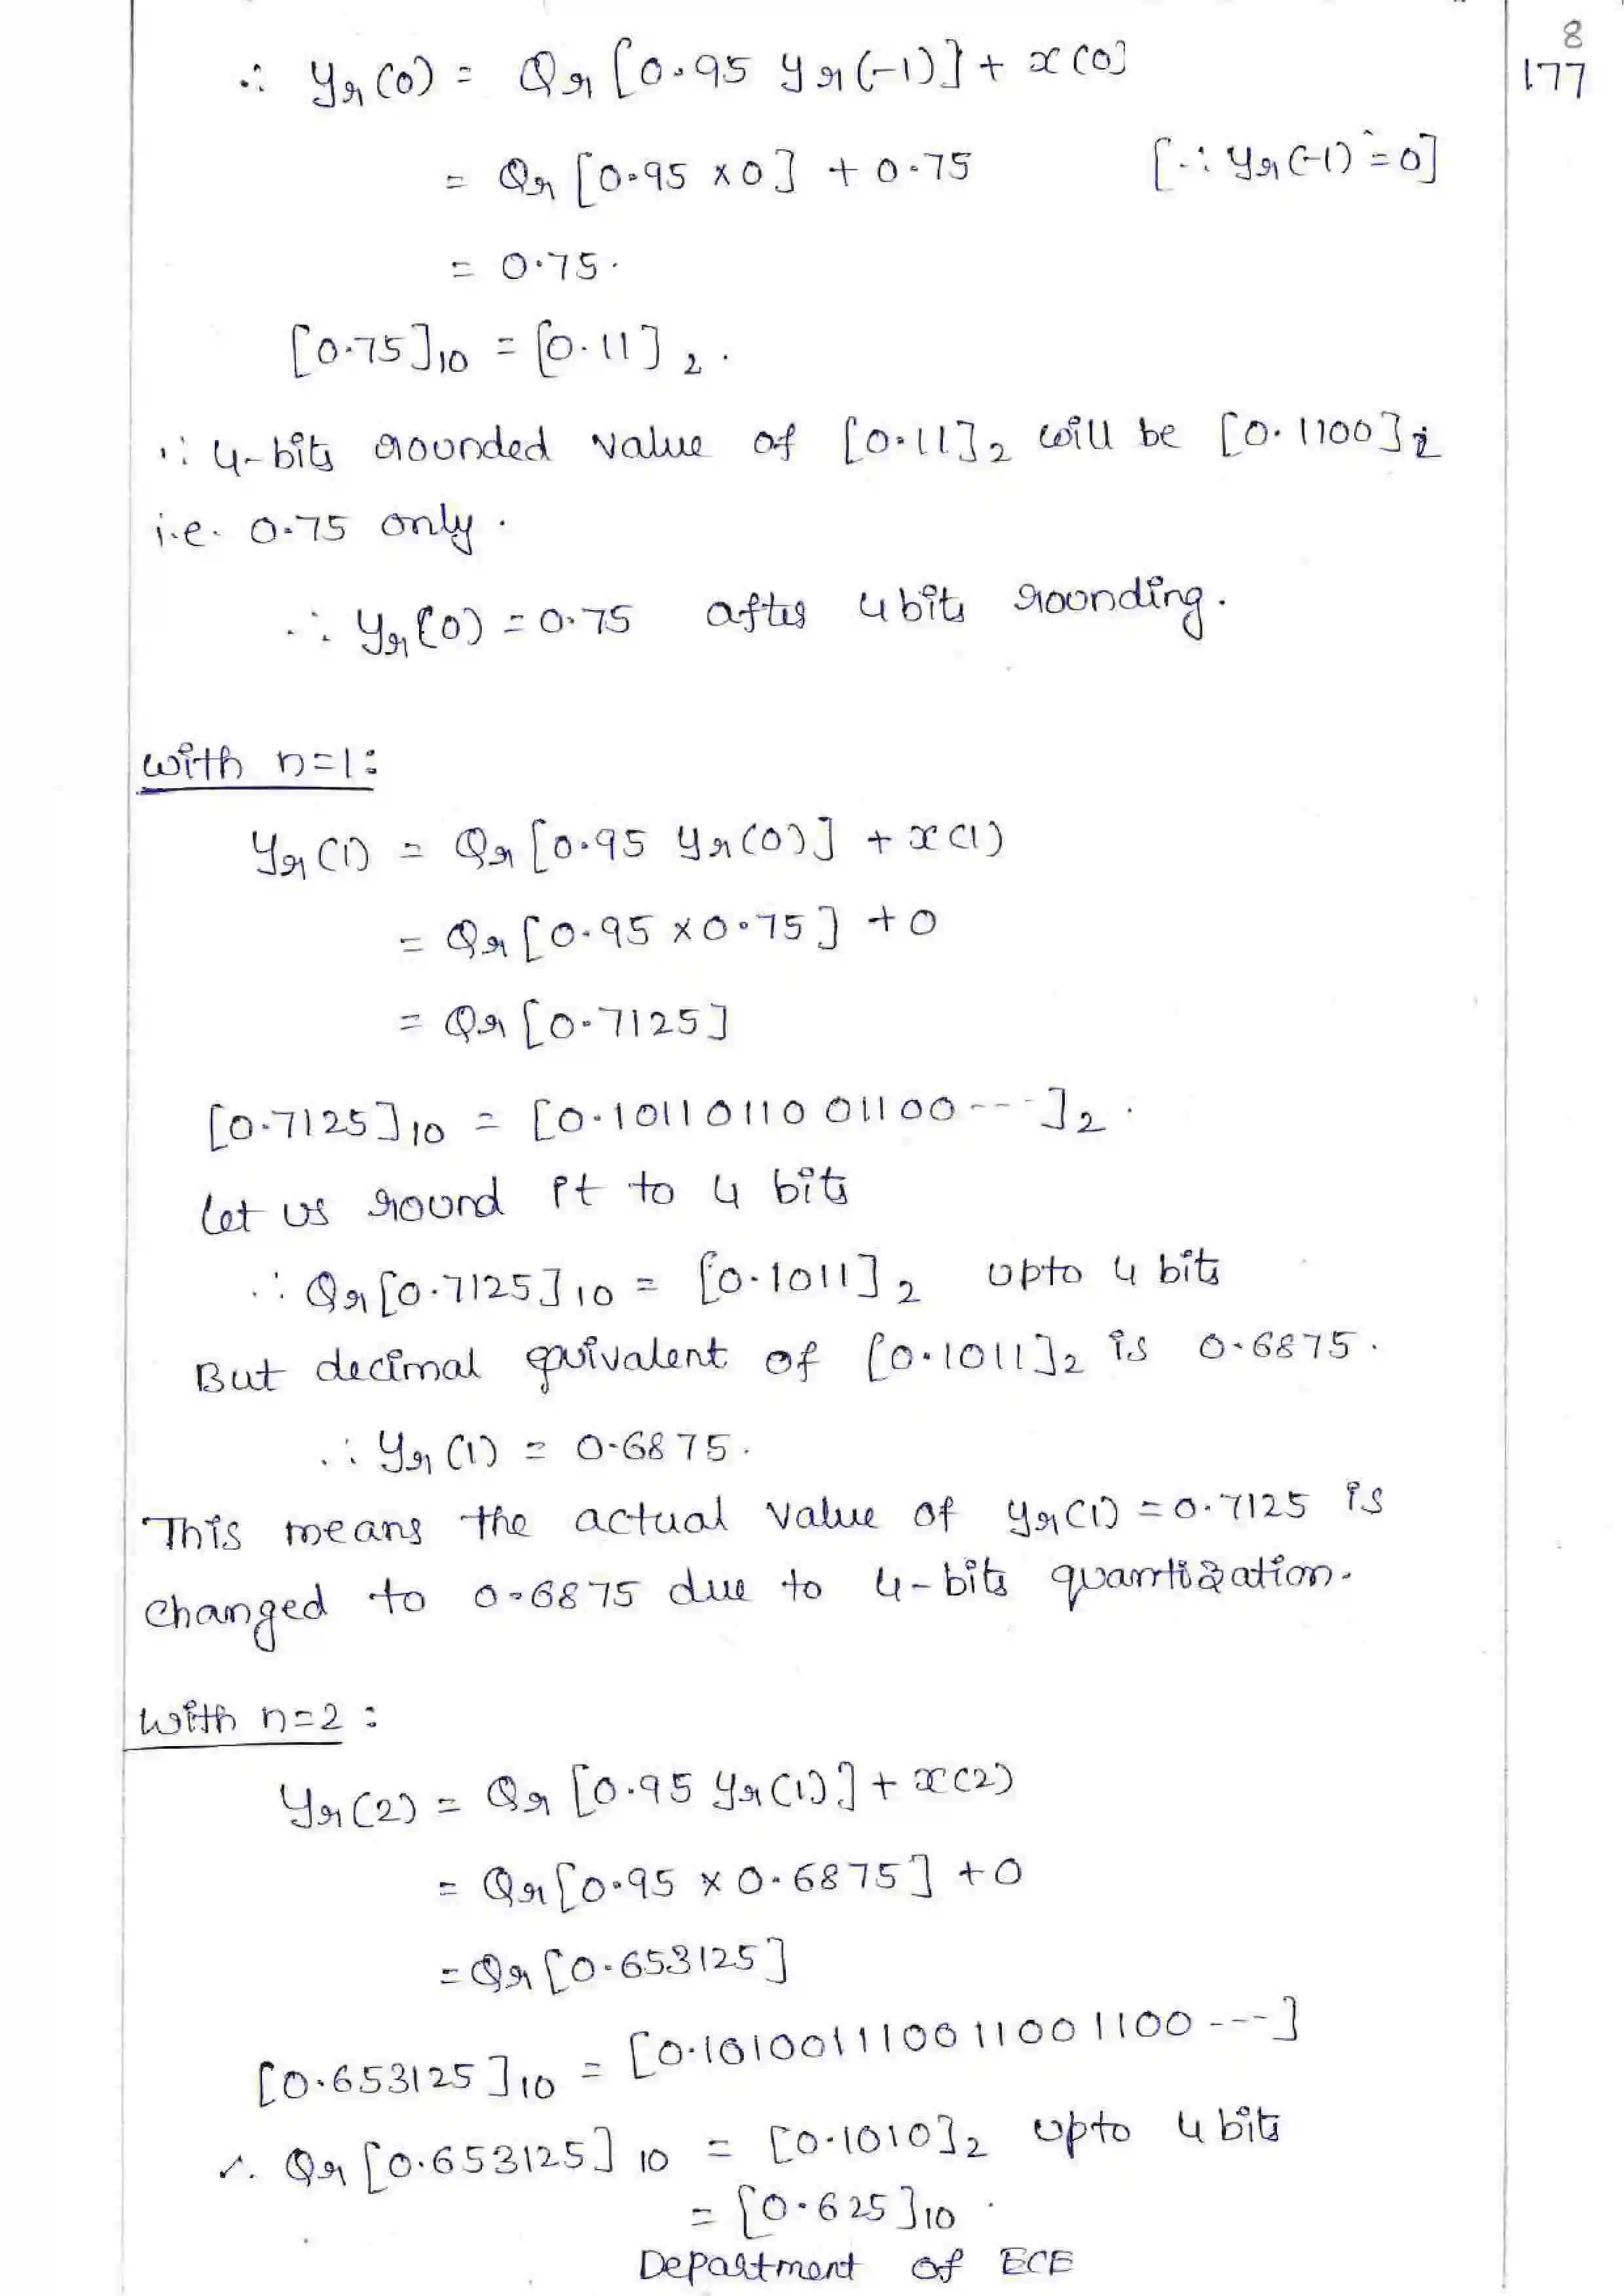 8
177
∴ yr(0) = Qr [0.95 yr(-1)] + x(0)
= Qr [0.95 x 0] + 0.75 [∵ yr(-1) = 0]
= 0.75.
[0.75]10 = [0.11]2.
∵ 4-bits rounded value of [0.11]2 will be [0.1100]2
i.e. 0.75 only.
∴ yr(0) = 0.75 after 4 bits rounding.
with n=1:
yr(1) = Qr [0.95 yr(0)] + x(1)
= Qr [0.95 x 0.75] + 0
= Qr [0.7125]
[0.7125]10 = [0.1011 0110 01100 ---]2.
Let us round it to 4 bits
∴ Qr [0.7125]10 = [0.1011]2 upto 4 bits
But decimal equivalent of [0.1011]2 is 0.6875.
∴ yr(1) = 0.6875.
This means the actual value of yr(1) = 0.7125 is
changed to 0.6875 due to 4-bits quantization.
with n=2:
yr(2) = Qr [0.95 yr(1)] + x(2)
= Qr [0.95 x 0.6875] + 0
= Qr [0.653125]
[0.653125]10 = [0.1010011100110011 00 ---]
∴ Qr [0.653125]10 = [0.1010]2 upto 4 bits
= [0.625]10.
Department of ECE